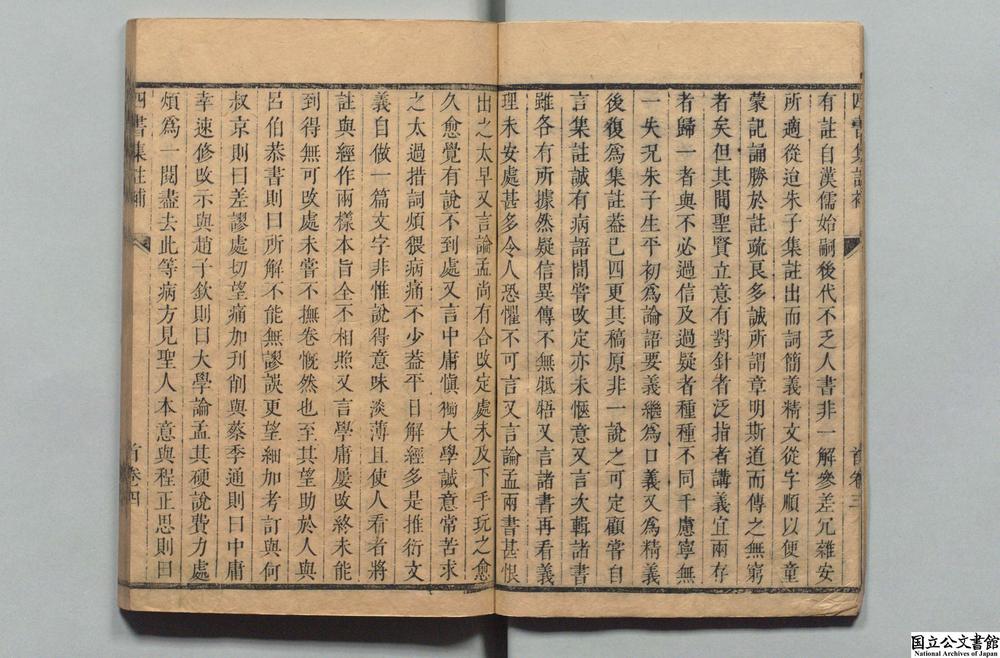 有註自漢儒始嗣後代不乏人書非一解參差冗雜安
所適從迨朱子集註出而詞簡義精文從字順以便童
蒙記誦勝於註疏良多誠所謂章明斯道而傳之無窮
者矣但其間聖賢立意有對針者泛指者講義宜兩存
者歸一者與不必過信及過疑者種種不同千慮寧無
一失況朱子生平初為論語要義繼為口義又為精義
後復為集註葢已四更其稿原非一說之可定顧嘗自
言集註誠有病語間嘗改定亦未愜意又言次輯諸書
雖各有所據然疑信異傳不無牴牾又言諸書再看義
理未安處甚多令人恐懼不可言又言論孟兩書甚恨
四書集註補
首卷三
出之太早又言論孟尚有合改定處未及下手玩之愈
久愈覺有說不到處又言中庸愼獨大學誠意常苦求
之太過措詞煩猥病痛不少葢平日解經多是推衍文
義自做一篇文字非惟說得意味淡薄且使人看者將
註與經作兩樣本旨全不相照又言學庸屢改終未能
到得無可改處未嘗不撫卷慨然也至其望助於人與
呂伯恭書則曰所解不能無謬誤更望細加考訂與何
叔京則曰差謬處切望痛加刋削與蔡季通則曰中庸
幸速修改示與趙子欽則曰大學論孟其硬說費力處
煩為一閱盡去此等病方見聖人本意與程正思則曰
四書集註補
首卷四
国立公文書館
National Archives of Japan